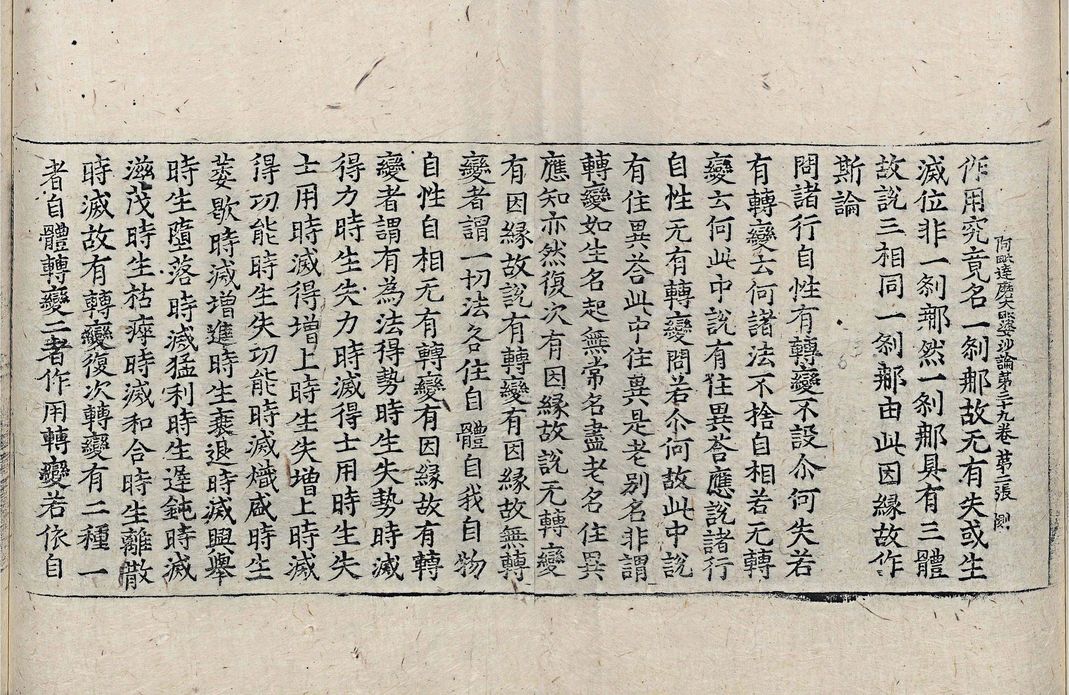 阿毗達磨大毗婆沙論第三十九卷 第二張 惻
作用究竟名一剎那故无有失或生
滅位非一剎那然一剎那具有三體
故說三相同一剎那由此因緣故作
斯論
問諸行自性有轉變不設尒何失若
有轉變云何諸法不捨自相若无轉
變云何此中說有住異荅應說諸行
自性无有轉變問若尒何故此中說
有住異荅此中住異是老別名非謂
轉變如生名起無常名盡老名住異
應知亦然復次有因緣故說无轉變
有因緣故說有轉變有因緣故無轉
變者謂一切法各住自體自我自物
自性自相无有轉變有因緣故有轉
變者謂有為法得勢時生失勢時滅
得力時生失力時滅得士用時生失
士用時滅得增上時生失增上時滅
得功能時生失功能時滅熾盛時生
萎歇時滅增進時生衰退時滅興舉
時生墮落時滅猛利時生遲鈍時滅
滋茂時生枯瘁時滅和合時生離散
時滅故有轉變復次轉變有二種一
者自體轉變二者作用轉變若依自